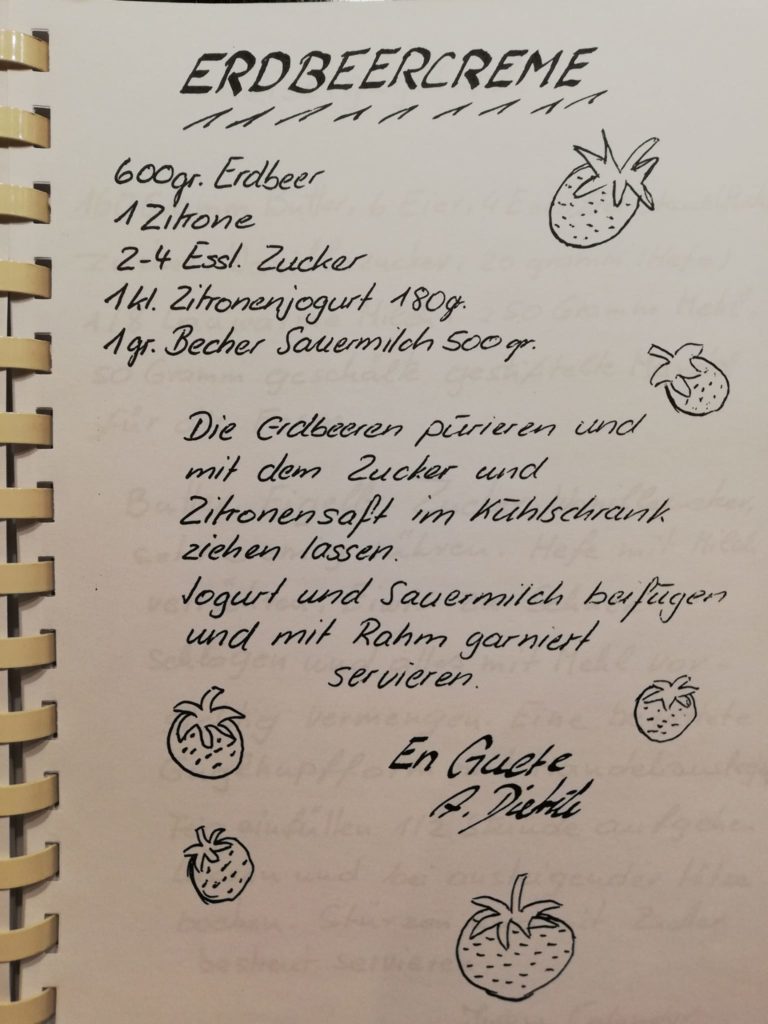 ERDBEERCREME
600gr. Erdbeer
1 Zitrone
2-4 Essl. Zucker
1 kl. Zitronenjogurt 180gr.
1 gr. Becher Sauermilch 500 gr.
Die Erdbeeren pürieren und
mit dem Zucker und
Zitronensaft im Kühlschrank
ziehen lassen.
Jogurt und Sauermilch beifügen
und mit Rahm garniert
servieren.
En Guete
A.